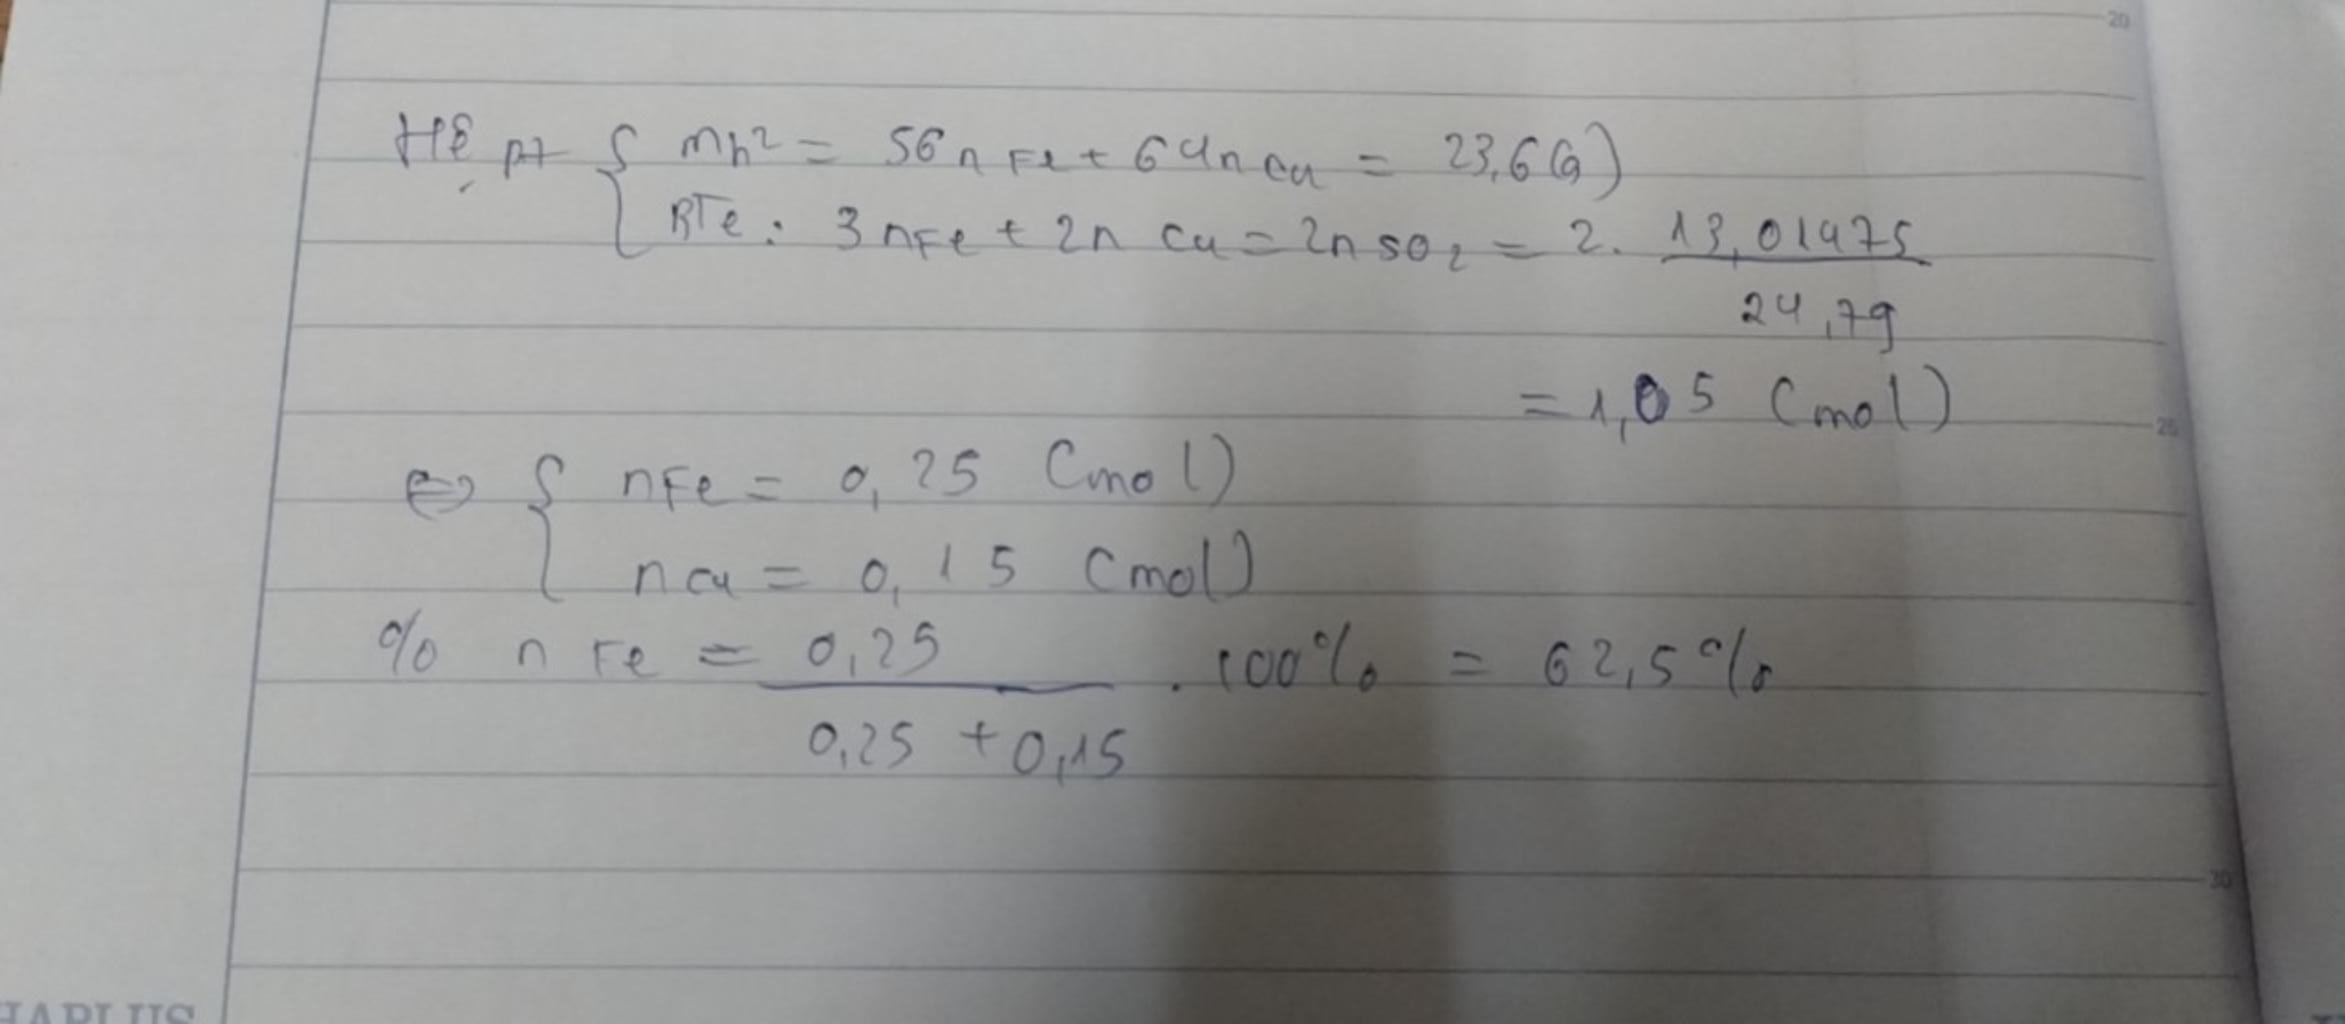 20
Hệ pt { mh² = 56nFe + 64nCu = 23,6(g)
BTe: 3nFe + 2n Cu = 2nSO₂ = 2. 13,01475
24,79
= 1,05 (mol)
25
⇔ { nFe = 0,25 (mol)
nCu = 0,15 (mol)
% n Fe = 0,25 . 100% = 62,5%
0,25 + 0,15
30